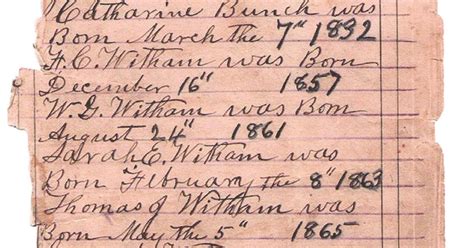 Catharine Bunch was
Born March the 7" 1832
F. C. Witham was Born
December 16" 1857
W. G. Witham was Born
August 24" 1861
Sarah E. Witham was
Born February the 8" 1863
Thomas J Witham was
Born May the 5" 1865